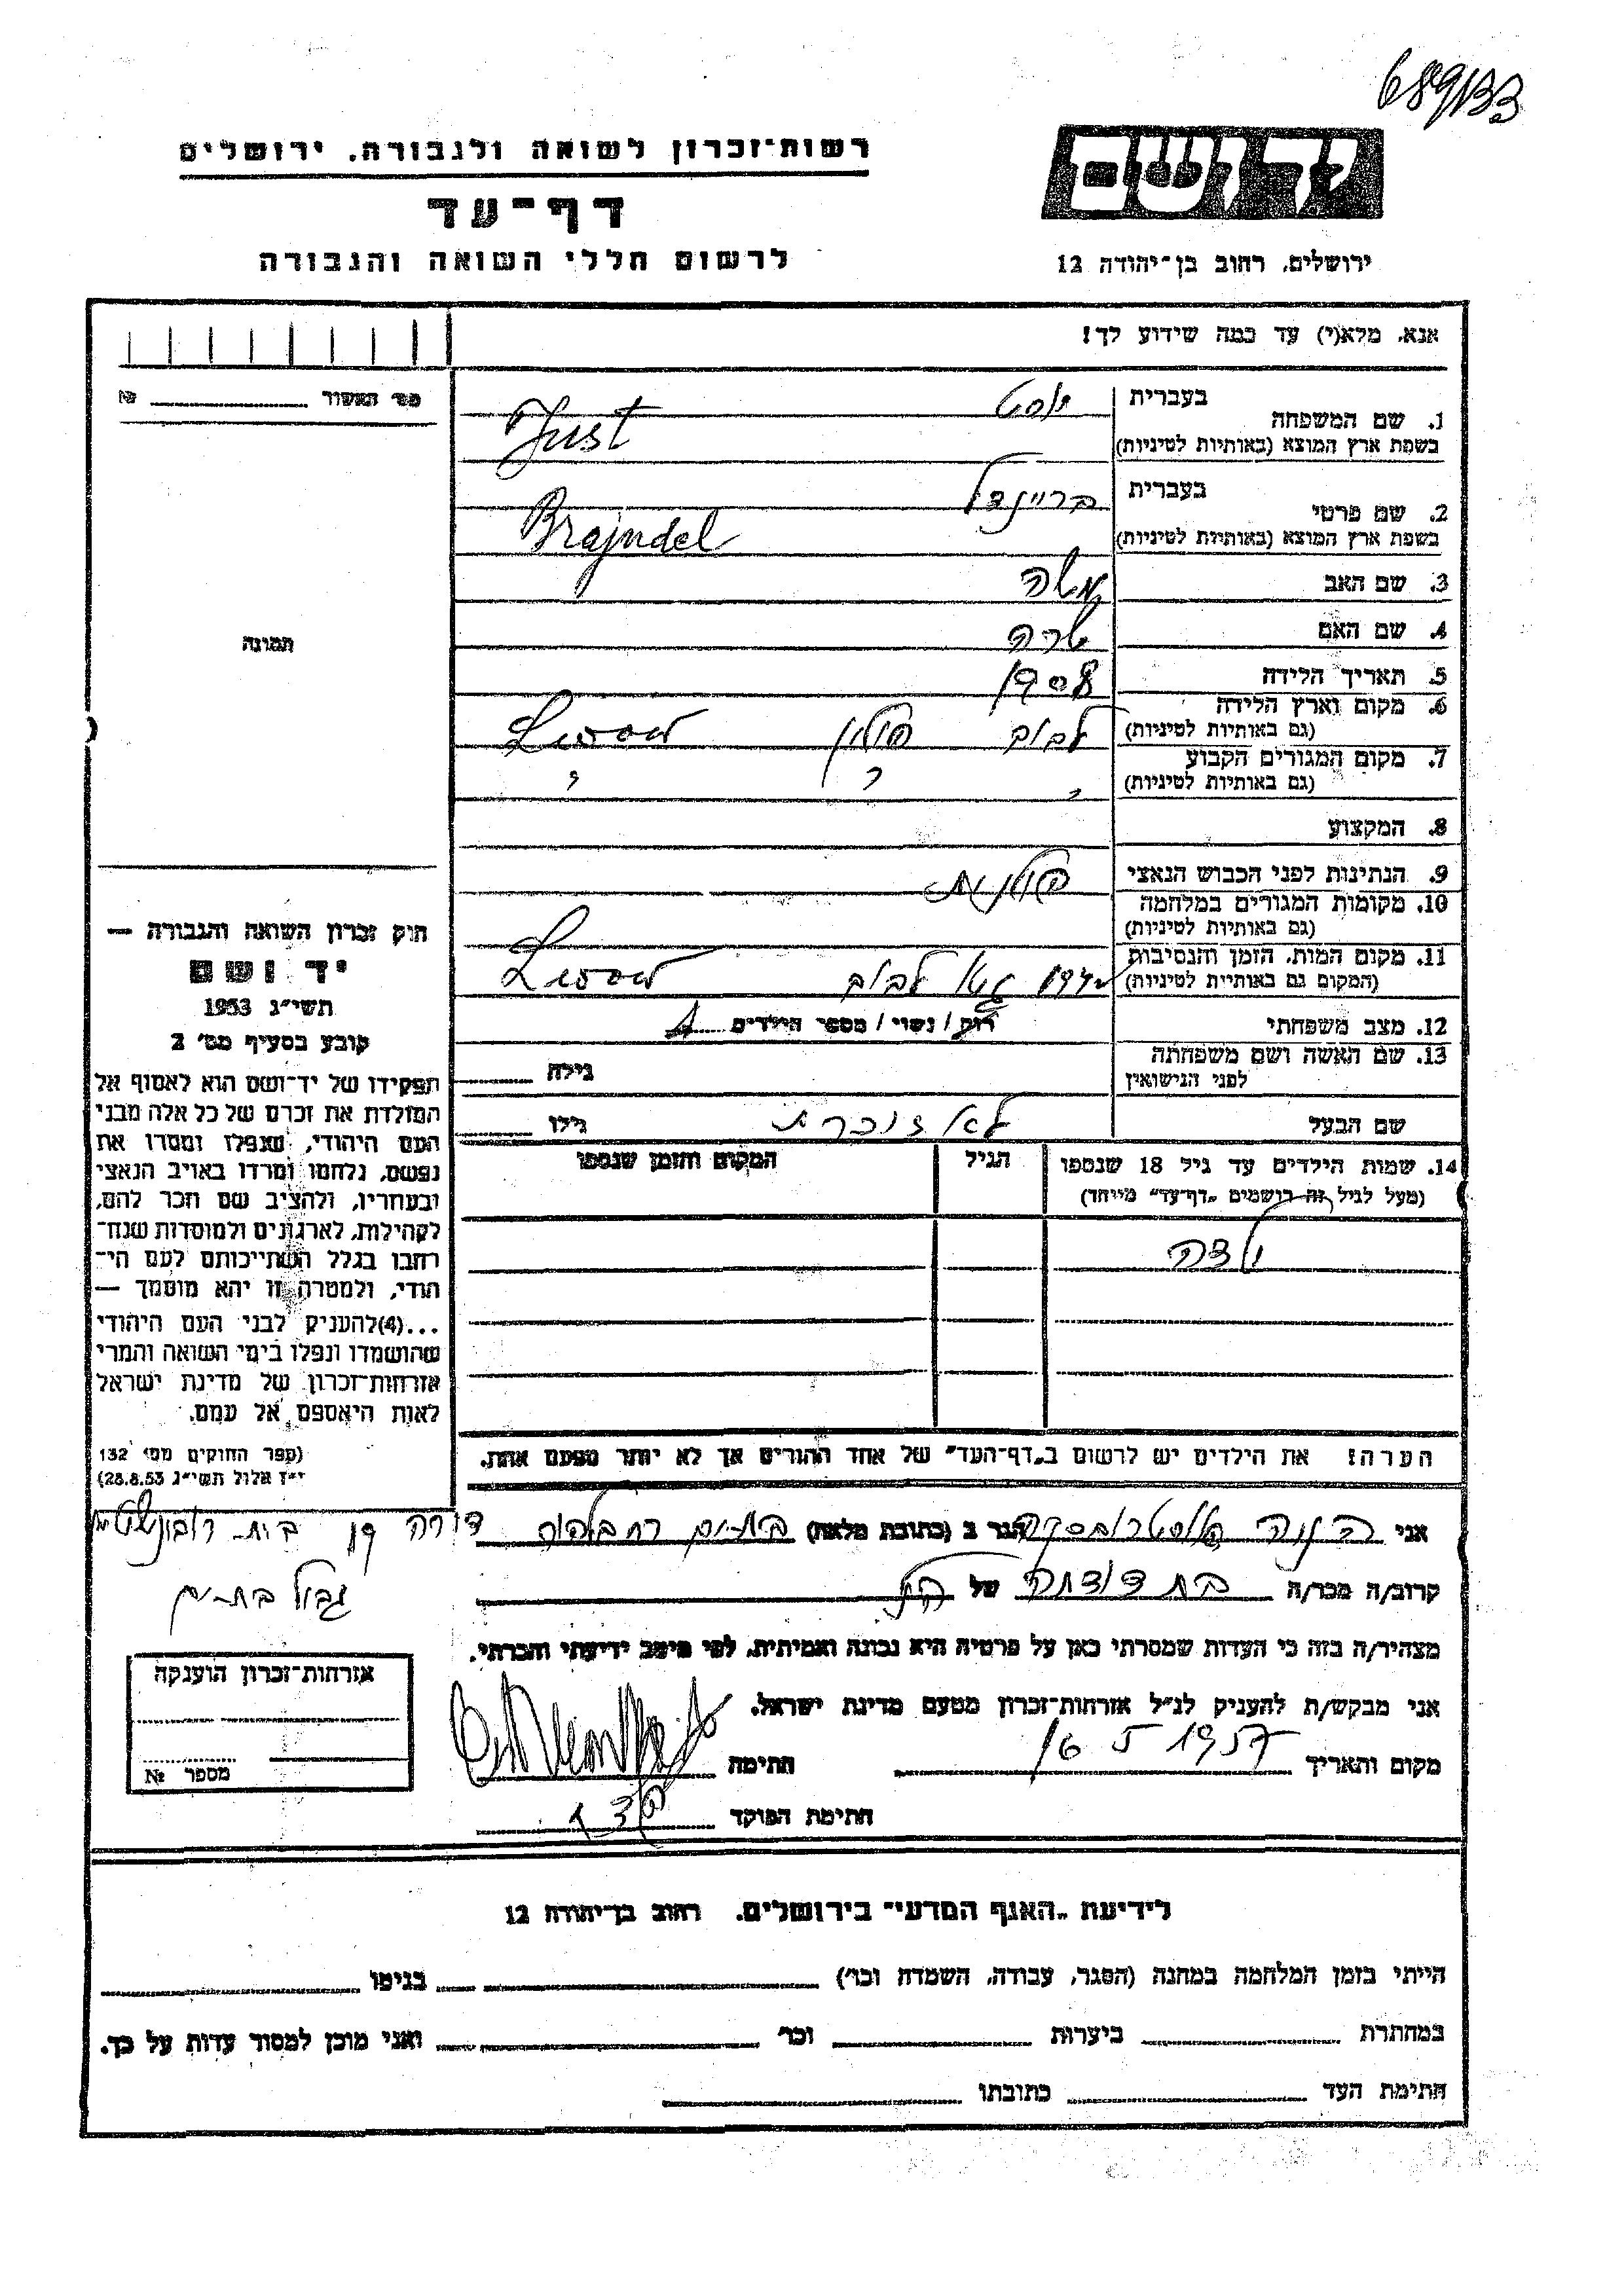 689/33
רשות-זכרון לשואה ולגבורה. ירושלים
דף-עד
לרשום חללי השואה והגבורה
ידושם
ירושלים, רחוב בן-יהודה 12
אנא, מלא(י) עד כמה שידוע לך!
מס׳ האשור № 
תמונה
חוק זכרון השואה והגבורה —
יד ושם
תשי״ג 1953
קובע בסעיף מס׳ 2
תפקידו של יד-ושם הוא לאסוף אל
המולדת את זכרם של כל אלה מבני
העם היהודי, שנפלו ומסרו את
נפשם, נלחמו ומרדו באויב הנאצי
ובעוזריו, ולהציב שם וזכר להם,
לקהילות, לארגונים ולמוסדות שנח-
רבו בגלל השתייכותם לעם הי-
הודי, ולמטרה זו יהא מוסמך —
...(4)להעניק לבני העם היהודי
שהושמדו ונפלו בימי השואה והמרי
אזרחות-זכרון של מדינת ישראל
לאות היאספם אל עמם.
(ספר החוקים מס׳ 132
י״ז אלול תשי״ג 28.8.53)
1. שם המשפחה בעברית יוסט
בשפת ארץ המוצא (באותיות לטיניות) Just
2. שם פרטי בעברית בריינדל
בשפת ארץ המוצא (באותיות לטיניות) Brajndel
3. שם האב משה
4. שם האם שרה
5. תאריך הלידה 1908
6. מקום וארץ הלידה (גם באותיות לטיניות) לבוב פולין Lwow
7. מקום המגורים הקבוע (גם באותיות לטיניות) " " "
8. המקצוע
9. הנתינות לפני הכבוש הנאצי פולנית
10. מקומות המגורים במלחמה (גם באותיות לטיניות)
11. מקום המות, הזמן והנסיבות (המקום גם באותיות לטיניות) 1942 גטו לבוב Lwow
12. מצב משפחתי רוק / נשוי / מספר הילדים 1
13. שם האשה ושם משפחתה לפני הנישואין גילה
שם הבעל לא זוכרת גילו
14. שמות הילדים עד גיל 18 שנספו הגיל המקום והזמן שנספו
(מעל לגיל זה רושמים „דף-עד״ מיוחד)
ילדה
הערה! את הילדים יש לרשום ב„דף-העד״ של אחד ההורים אך לא יותר מפעם אחת.
אני הגר ב (כתובת מלאה) בת-ים
גבול בת-ים
קרוב/ה מכר/ה בת דודתה של הנ״ל
מצהיר/ה בזה כי העדות שמסרתי כאן על פרטיה היא נכונה ואמיתית, לפי מיטב ידיעתי והכרתי.
אני מבקש/ת להעניק לנ״ל אזרחות-זכרון מטעם מדינת ישראל.
מקום ותאריך 16 5 1957 חתימה
חתימת הפוקד
אזרחות-זכרון הוענקה
מספר №
לידיעת „האגף המדעי״ בירושלים. רחוב בן-יהודה 12
הייתי בזמן המלחמה במחנה (הסגר, עבודה, השמדה וכו׳) בגיטו
במחתרת ביערות וכו׳ ואני מוכן למסור עדות על כך.
חתימת העד כתובתו